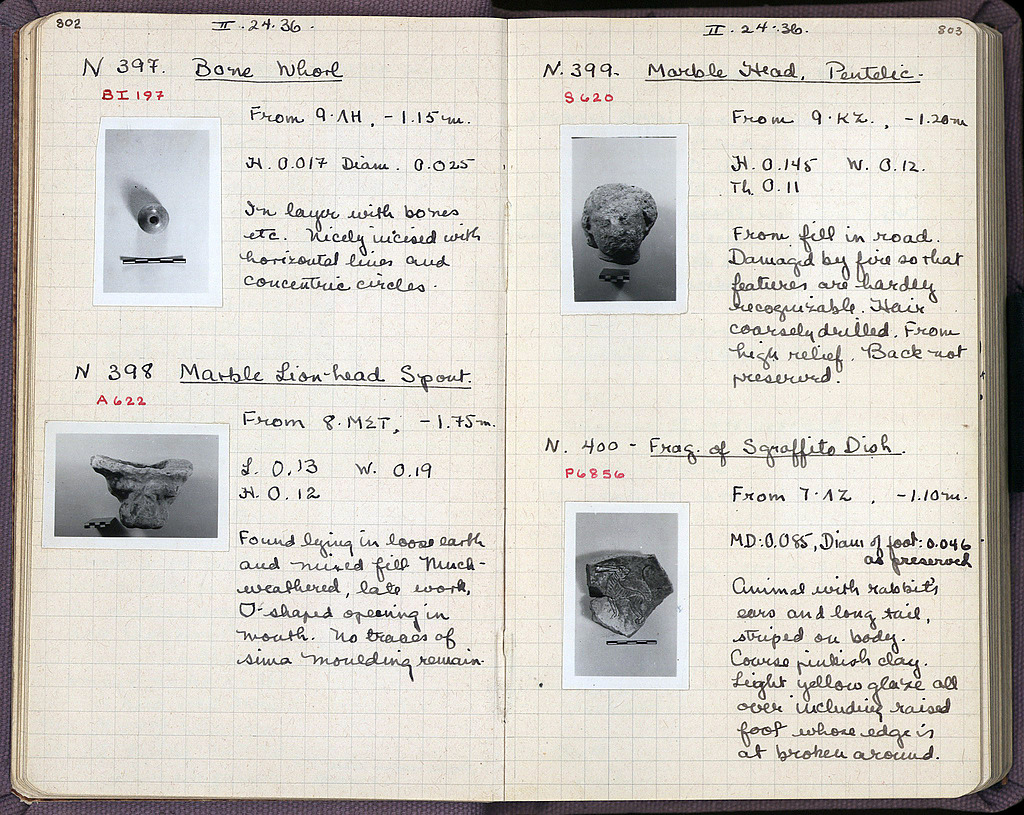 802
II.24.36.
N 397. Bone Whorl
BI 197
From 9.ΛΗ, -1.15 m.
H. 0.017 Diam. 0.025
In layer with bones
etc. Nicely incised with
horizontal lines and
concentric circles.
N 398 Marble Lion-head Spout.
A 622
From 8.ΜΣΤ, -1.75 m.
L. 0.13 W. 0.19
H. 0.12
Found lying in loose earth
and mixed fill Much-
weathered, late work,
U-shaped opening in
mouth. No traces of
sima moulding remain.
II.24.36.
803
N. 399. Marble Head, Pentelic.
S 620
From 9.ΚΖ., -1.20 m
H. 0.145 W. 0.12.
Th. 0.11
From fill in road.
Damaged by fire so that
features are hardly
recognizable. Hair
coarsely drilled. From
high relief. Back not
preserved.
N. 400 - Frag. of Sgraffito Dish.
P6856
From 7.ΛΖ, -1.10 m.
MD: 0.085, Diam of foot: 0.046
as preserved
Animal with rabbit's
ears and long tail,
striped on body.
Coarse pinkish clay.
Light yellow glaze all
over including raised
foot whose edge is
at broken around.